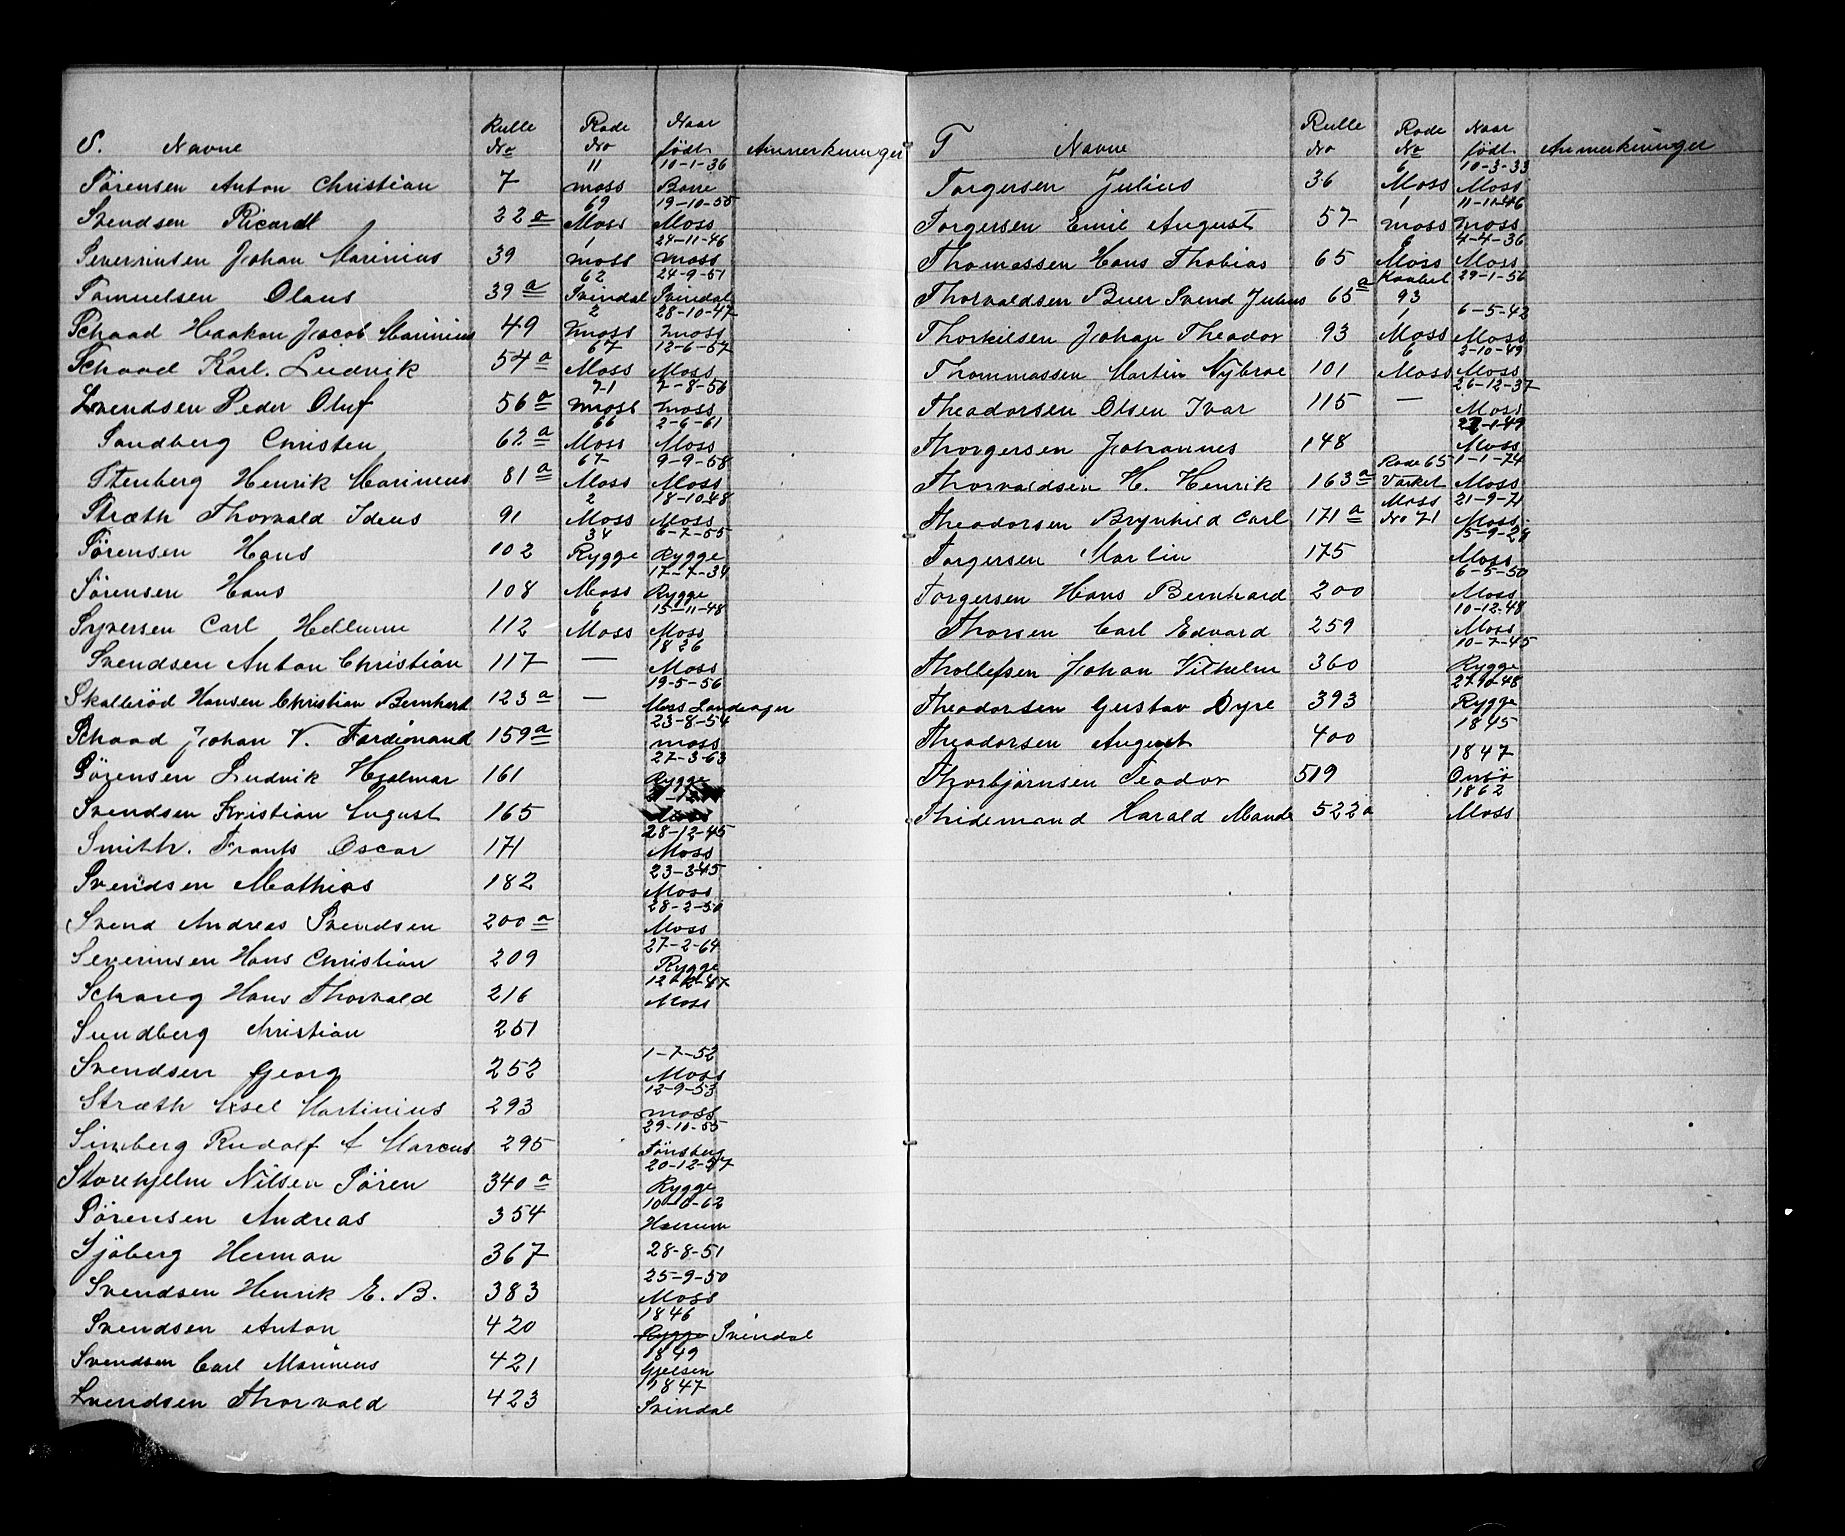 S. Navne Rulle No Rode No Naar født Anmerkninger
Sørensen Anton Christian 7 11 Moss 10-1-36
Svendsen Ricardt 22a 69 Moss 19-10-55 Moss
Severinsen Johan Marinius 39 1 Moss 24-11-46 Moss
Samuelsen Olaus 39a 62 Svindal 24-9-51 Svindal
Schaad Haakon Jacob Marinius 49 2 Moss 28-10-47 Moss
Schaad Karl. Ludvik 54a 67 Moss 12-6-57 Moss
Svendsen Peder Oluf 56a 71 Moss 7-8-56 Moss
Sandberg Christen 62a 66 Moss 2-6-61 Moss
Stenberg Henrik Marinius 81a 67 Moss 9-9-58 Moss
Stræth Thorvald Ideus 91 2 Moss 18-10-48 Moss
Sørensen Hans 102 34 Rygge 6-7-55 Rygge
Sørensen Hans 108 Moss 17-7-34 Rygge
Syversen Carl Hellum 112 6 Moss 15-11-48 Moss
Svendsen Anton Christian 117 — 1826 Moss
Skalbröd Hansen Christian Bernhard 123a — 19-5-56 Moss Landsogn
Schaad Johan V. Ferdinand 159a 23-8-54 Moss
Sørensen Ludvik Hjalmar 161 27-3-63 Rygge
Svendsen Kristian August 165
Smith. Frants Oscar 171 28-12-45 Moss
Svendsen Mathias 182 23-3-45 Moss
Svend Andreas Svendsen 200a 28-2-50 Moss
Severinsen Hans Christian 209 27-2-64 Rygge
Schareg Hans Thorvald 216 12-12-47 Moss
Sundberg Christian 251
Svendsen Georg 252 1-7-52 Moss
Stræth Axel Martinius 293 12-9-53 Moss
Simberg Rudolf A Marcus 295 29-10-55 Tønsberg
Storehjelm Nilsen Søren 340a 20-12-57 Rygge
Sørensen Andreas 354 10-10-62
Sjøberg Herman 367 28-8-51
Svendsen Henrik E. B. 383 25-9-50 Moss
Svendsen Anton 420 1846 Rygge Svindal
Svendsen Carl Marinius 421 1849
Svendsen Thorvald 423 1847 Svindal
T Navne Rulle No Rode No Naar født Anmerkninger
Torgersen Julius 36 6 Moss 10-3-33 Moss
Torgersen Emil August 57 1 Moss 11-11-46 Moss
Thomassen Hans Thobias 65 6 Moss 4-4-36 Moss
Thorvaldsen Buer Svend Julius 65a 93 29-1-56
Thorkilsen Johan Theodor 93 1 Moss 6-5-42 Moss
Thommassen Martin Nybroe 101 6 Moss 2-10-49 Moss
Theodorsen Olsen Ivar 115 — 26-12-37 Moss
Thorgersen Johannes 148 22-1-49 Moss
Thorvaldsen H. Henrik 163a Rode 65 Varket 1-1-74 Moss
Theodorsen Brynhild Carl 171a Moss No 71 21-9-71 Moss
Torgersen Martin 175 15-9-29 Moss
Torgersen Hans Bernhard 200 6-5-50 Moss
Thorsen Carl Edvard 259 10-12-48 Moss
Thollefsen Johan Vilhelm 360 10-7-45 Rygge
Theodorsen Gustav Dyre 393 27-10-48 Rygge
Theodorsen August 400 1845
Thorbjørnsen Teodor 519 1847 Onsø
Thidemand Harald Mande 522a 1862 Moss